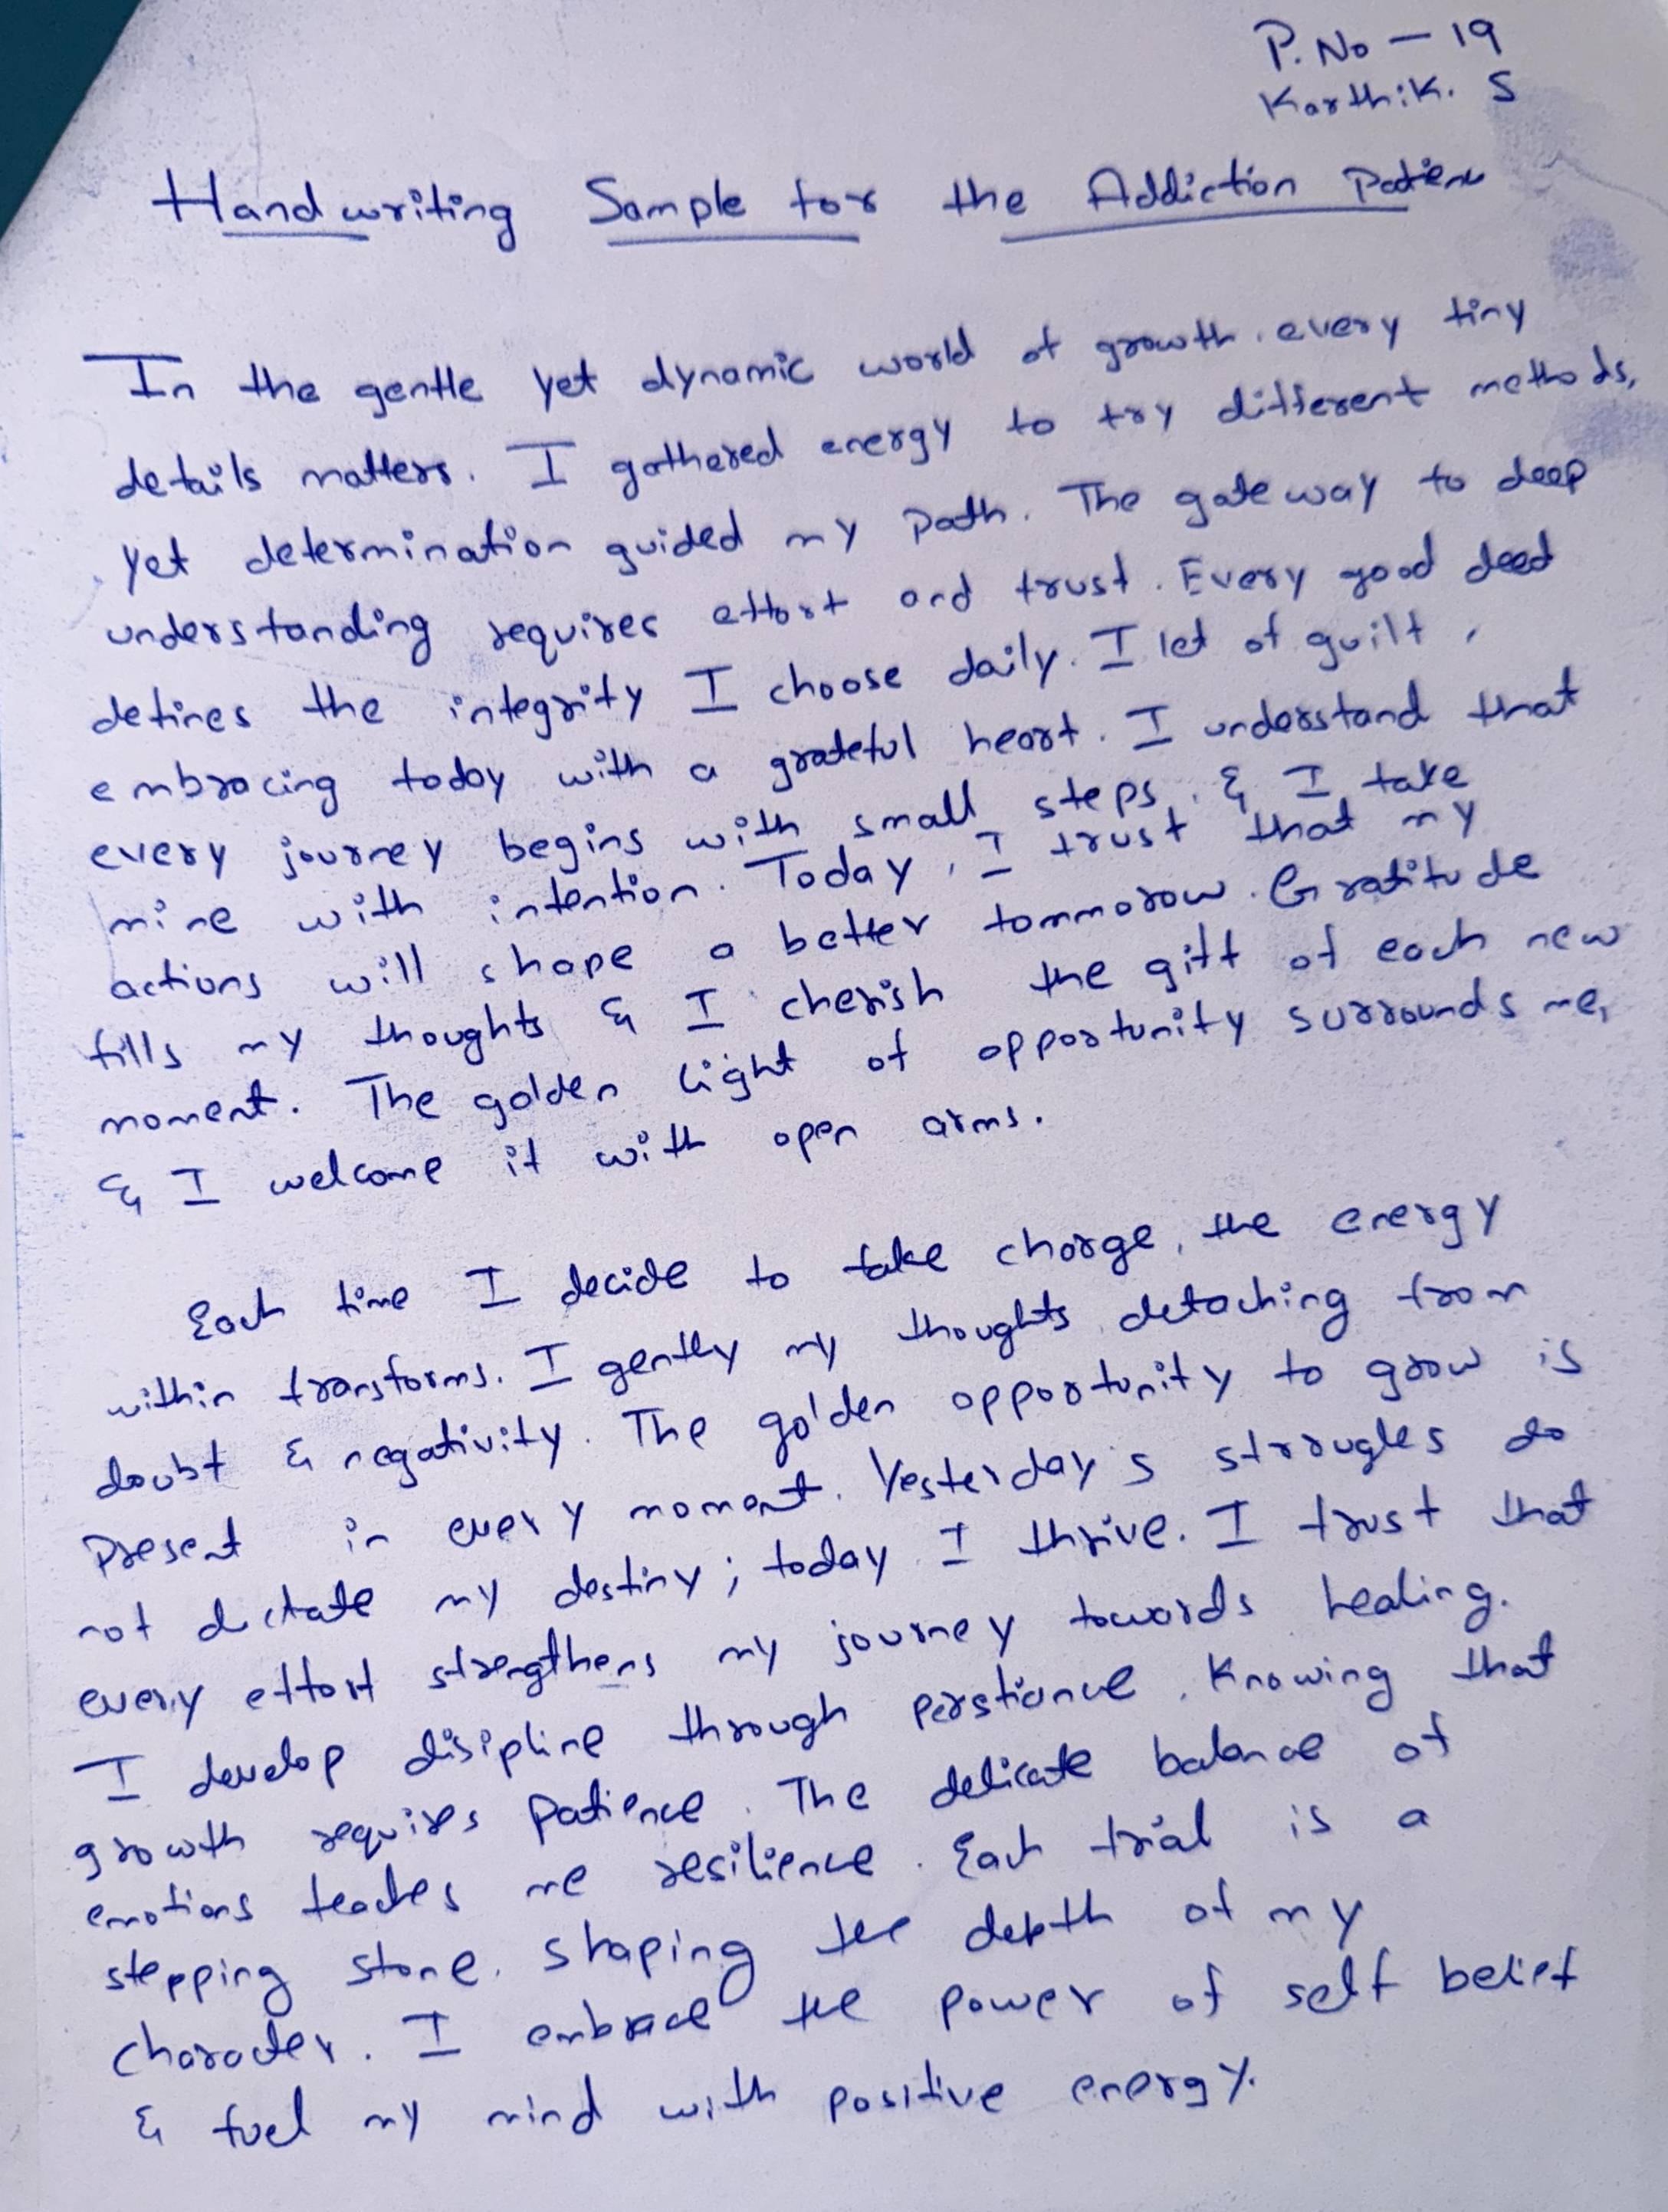 P. No — 19
Karthik. S
Handwriting Sample for the Addiction Patient
In the gentle yet dynamic world of growth, every tiny
details matters. I gathered energy to try different methods,
yet determination guided my path. The gateway to deep
understanding requires effort and trust. Every good deed
defines the integrity I choose daily. I let of guilt,
embracing today with a grateful heart. I understand that
every journey begins with small steps, & I take
mine with intention. Today, I trust that my
actions will shape a better tommorow. Gratitude
fills my thoughts & I cherish the gift of each new
moment. The golden light of opportunity surrounds me,
& I welcome it with open arms.
Each time I decide to take charge, the energy
within transforms. I gently my thoughts, detaching from
doubt & negativity. The golden opportunity to grow is
present in every moment. Yesterday's strougles do
not dictate my destiny; today I thrive. I trust that
every effort strengthens my journey towards healing.
I develop disipline through perstiance, Knowing that
growth requires patience. The delicate balance of
emotions teaches me resilience. Each trial is a
stepping stone, shaping the depth of my
character. I embrace the power of self belief
& fuel my mind with positive energy.